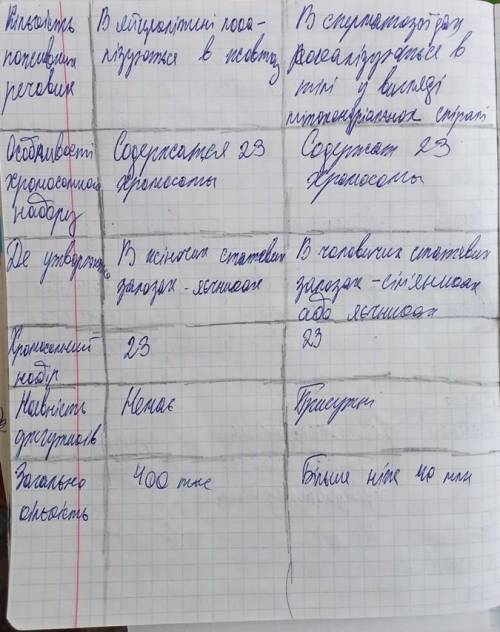 Кількість
поживних
речовин
В яйцеклітині лока-
лізуються в жовтку
В сперматозоїдах
локалізуються в
шиї у вигляді
мітохондріальної спіралі
Особливості
хромосомного
набору
Содержатся 23
хромосомы
Содержат 23
хромосомы
Де утворюються
В жіночих статевих
залозах - яєчниках
В чоловічих статевих
залозах - сім'яниках
або яєчниках
Хромосомний
набір
23
23
Наявність
джгутиків
Немає
Присутні
Загально
кількість
400 тис
Більше ніж 40 млн